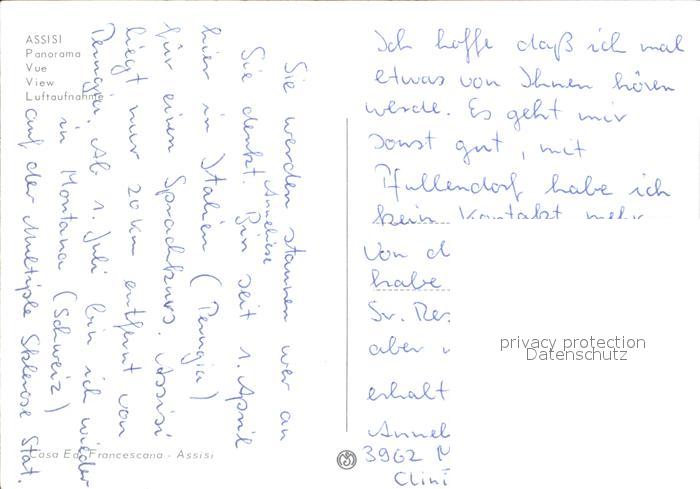 ASSISI
Panorama
Vue
View
Luftaufnahme
Sie werden staunen wer an
Sie denkt. Anneliese Bin seit 1. April
hier in Italien (Perugia)
für einen Sprachkurs. Assisi
liegt nur 20 km entfernt von
Perugia. Ab 1. Juli bin ich wieder
in Montana (Schweiz)
auf der Multiple Sklerose Stat.
Casa Ed. Francescana - Assisi
Ich hoffe daß ich mal
etwas von Ihnen hören
werde. Es geht mir
sonst gut, mit
Pfullendorf habe ich
kein Kontakt mehr
von d
habe
Sr. Res
aber
erhalt
Annel
3962 M
Clini
privacy protection
Datenschutz